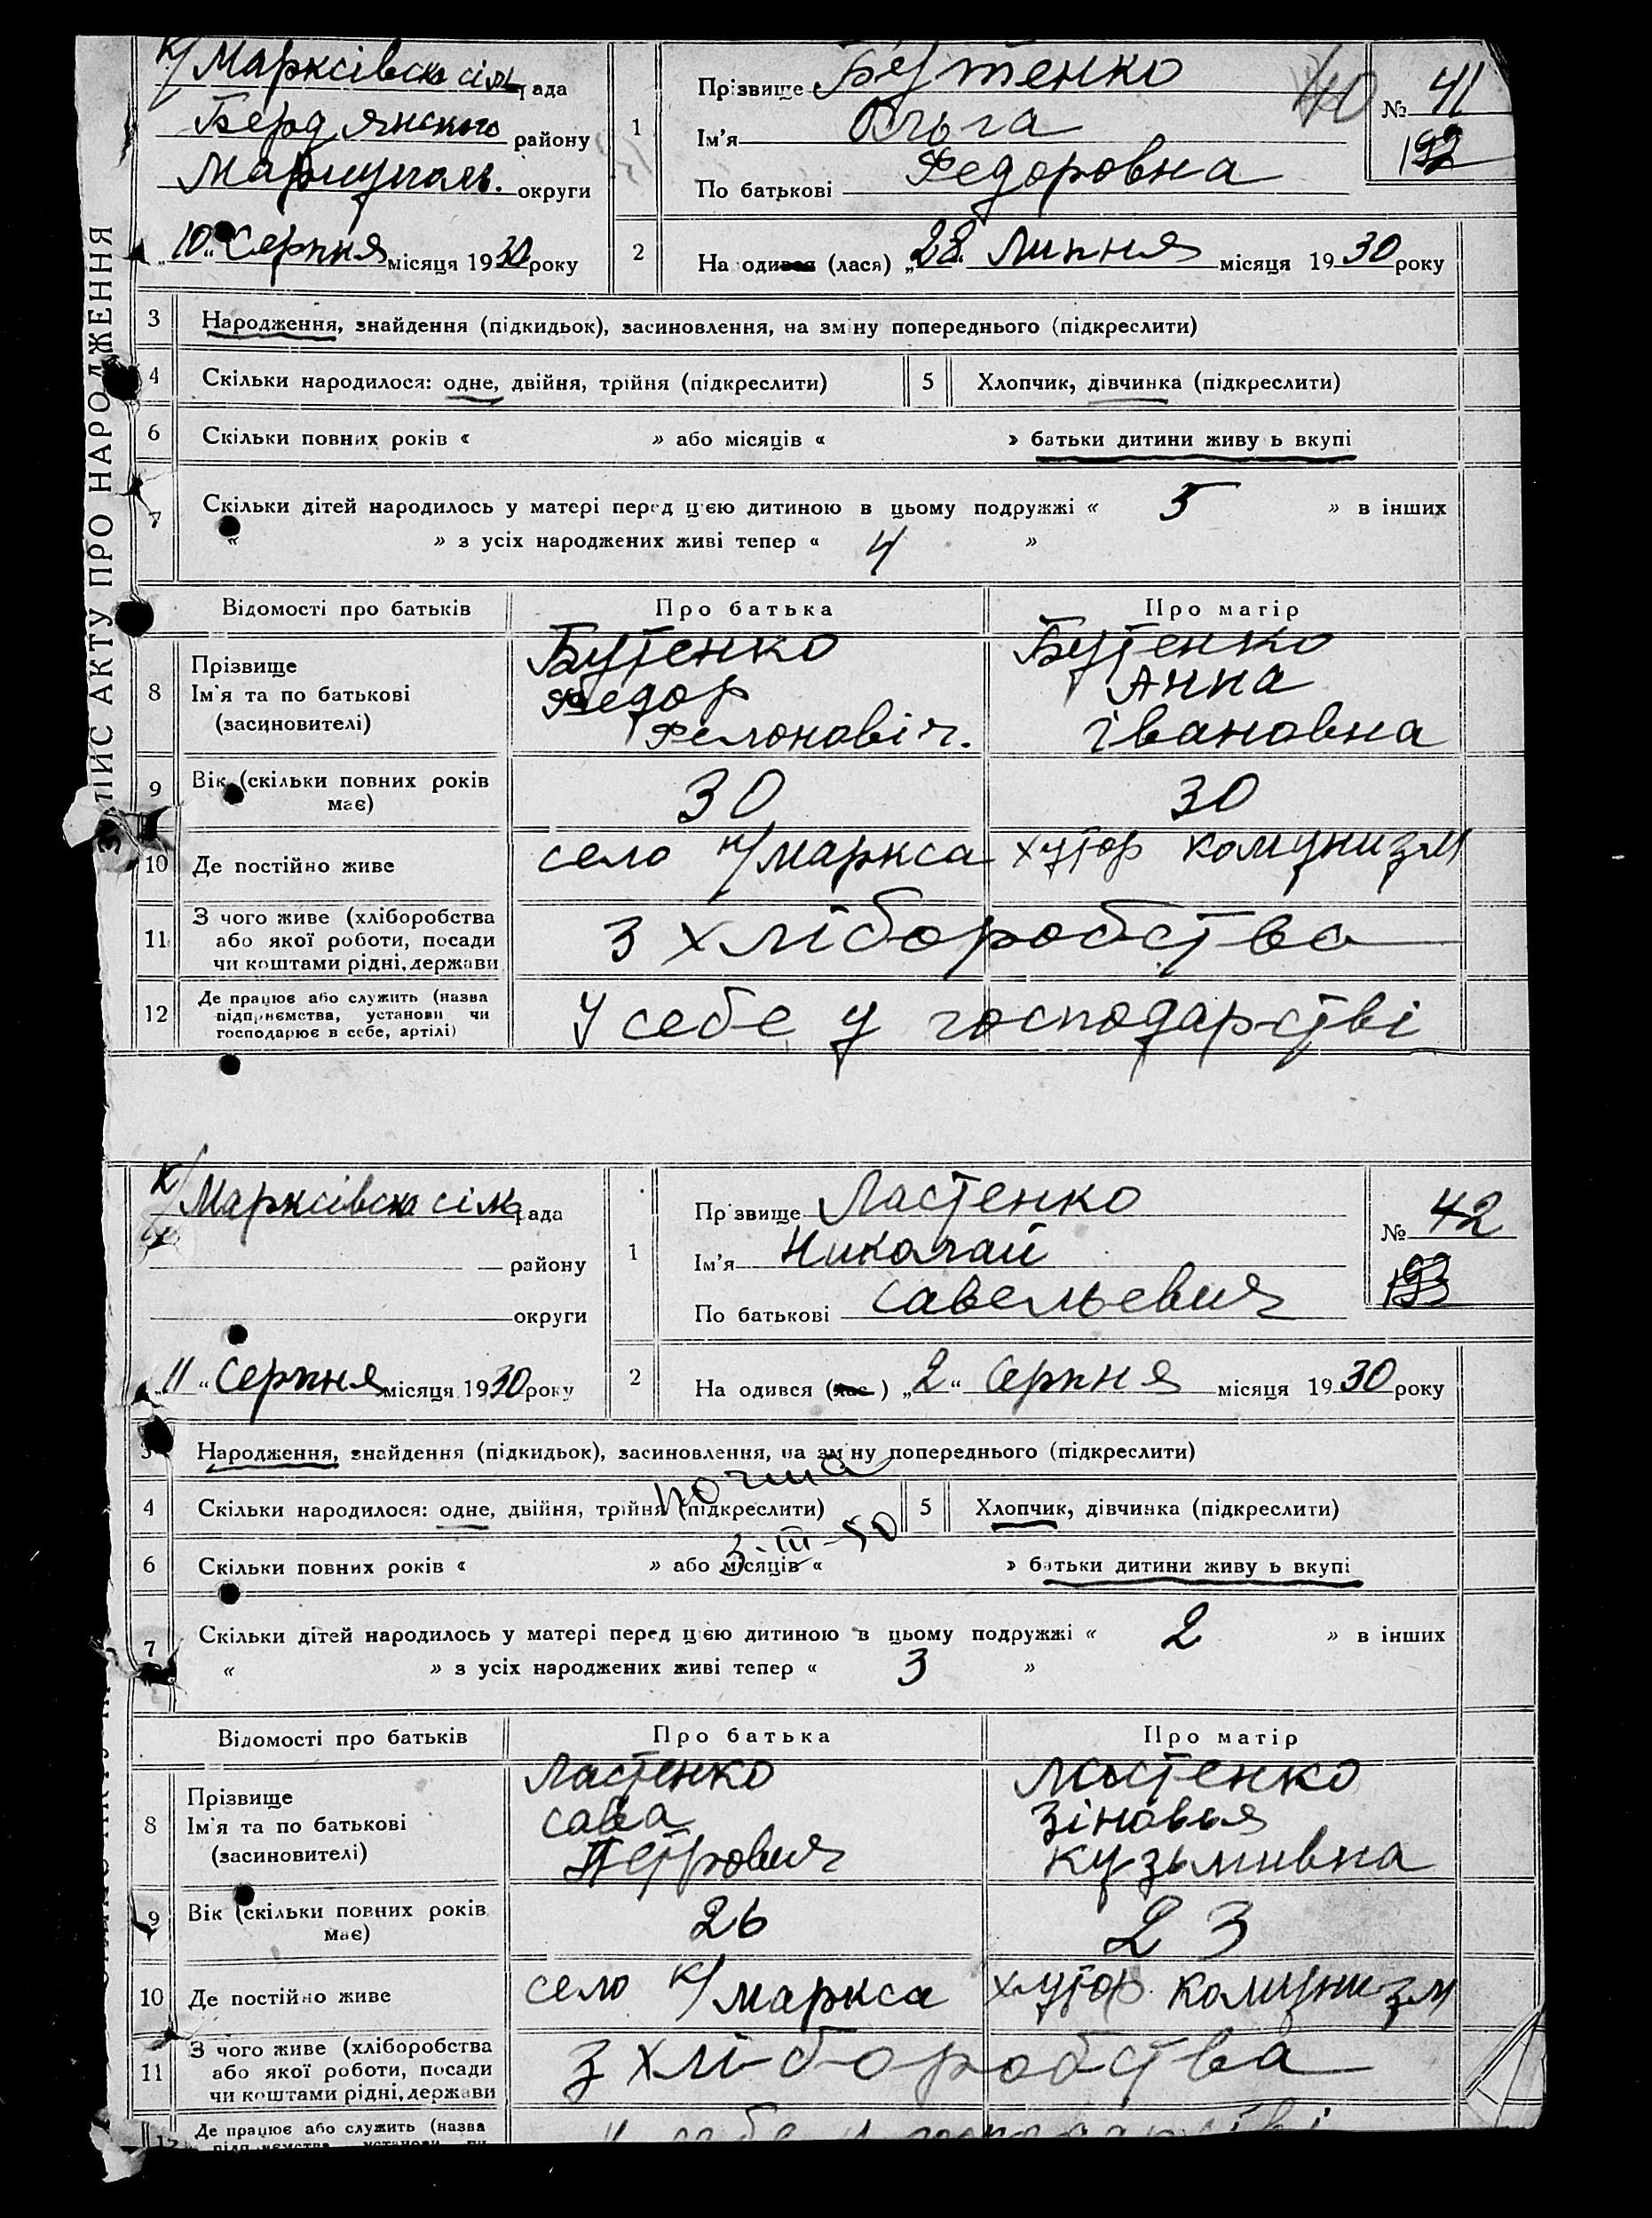 К/Марксівска сільрада
Бердянского району
Мариуполь. округи
„10“ Серпня місяця 1930 року
1
Прізвище Бутенко
Ім'я Ольга
По батькові Федоровна
40
№ 41
192
2
На одився (лася) „28“ Липня місяця 1930 року
3 Народження, знайдення (підкидьок), засиновлення, на зміну попереднього (підкреслити)
4 Скільки народилося: одне, двійня, трійня (підкреслити) 5 Хлопчик, дівчинка (підкреслити)
6 Скільки повних років « » або місяців « » батьки дитини живу ь вкупі
7 Скільки дітей народилось у матері перед цією дитиною в цьому подружжі « 5 » в інших
« » з усіх народжених живі тепер « 4 »
Відомості про батьків Про батька Про матір
8 Прізвище
Ім'я та по батькові
(засиновителі)
Бутенко
Федор
Фелоновіч.
Бутенко
Анна
івановна
9 Вік (скільки повних років
має)
30 30
10 Де постійно живе село к/маркса хутор комунизм
11 З чого живе (хліборобства
або якої роботи, посади
чи коштами рідні, держави
З хліборобства
12 Де працює або служить (назва
підприємства, установи чи
господарює в себе, артілі)
У себе у господарстві
ПИС АКТУ ПРО НАРОДЖЕННЯ
К/Марксівска сільрада
району
округи
„11“ Серпня місяця 1930 року
1
Пр звище Ластенко
Ім'я Николай
По батькові савельевич
№ 42
193
2
На одився (лас ) „2“ Серпня місяця 1930 року
3 Народження, знайдення (підкидьок), засиновлення, на зміну попереднього (підкреслити)
4 Скільки народилося: одне, двійня, трійня (підкреслити) 5 Хлопчик, дівчинка (підкреслити)
почта
3-III-50
6 Скільки повних років « » або місяців « » батьки дитини живу ь вкупі
7 Скільки дітей народилось у матері перед цією дитиною в цьому подружжі « 2 » в інших
« » з усіх народжених живі тепер « 3 »
Відомості про батьків Про батька Про матір
8 Прізвище
Ім'я та по батькові
(засиновителі)
Ластенко
сава
Петрович
Ластенко
Зіновья
кузьмивна
9 Вік (скільки повних років
має)
26 23
10 Де постійно живе село к/маркса хутор комунизм
11 З чого живе (хліборобства
або якої роботи, посади
чи коштами рідні, держави
З хліборобства
12 Де працює або служить (назва